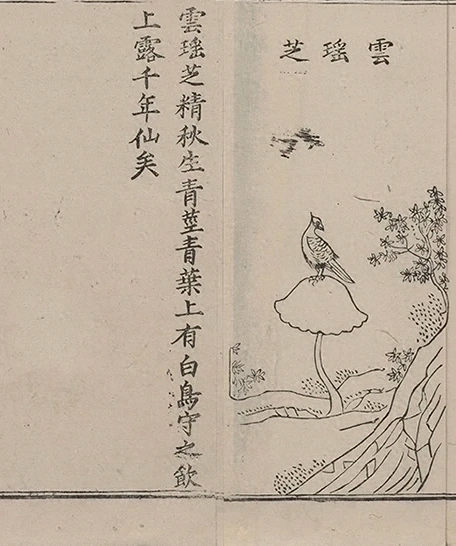 雲瑤芝
雲瑤芝精秋生青莖青葉上有白鳥守之飲
上露千年仙矣